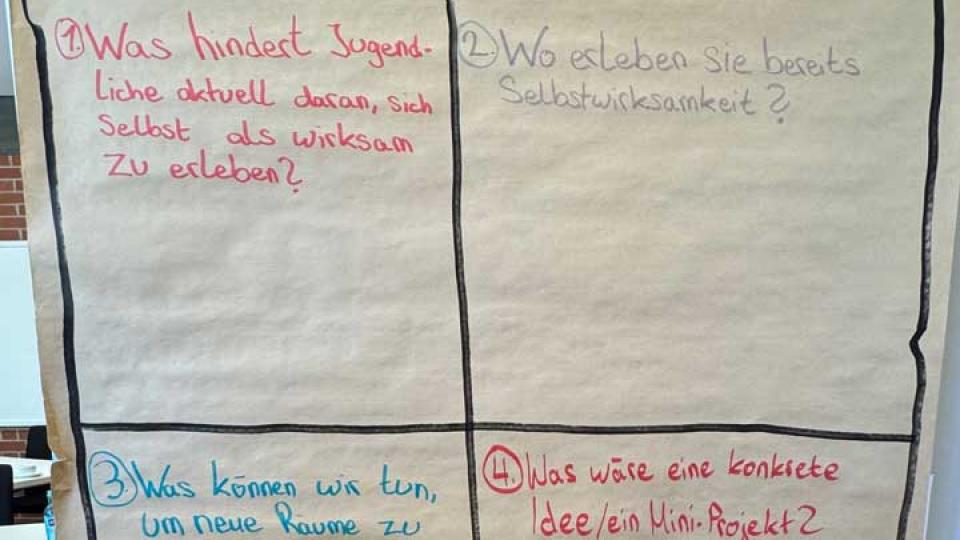 1. Was hindert Jugend-
liche aktuell daran, sich
selbst als wirksam
zu erleben?
2. Wo erleben Sie bereits
Selbstwirksamkeit?
3. Was können wir tun,
um neue Räume zu
4. Was wäre eine konkrete
Idee/ein Mini-Projekt?